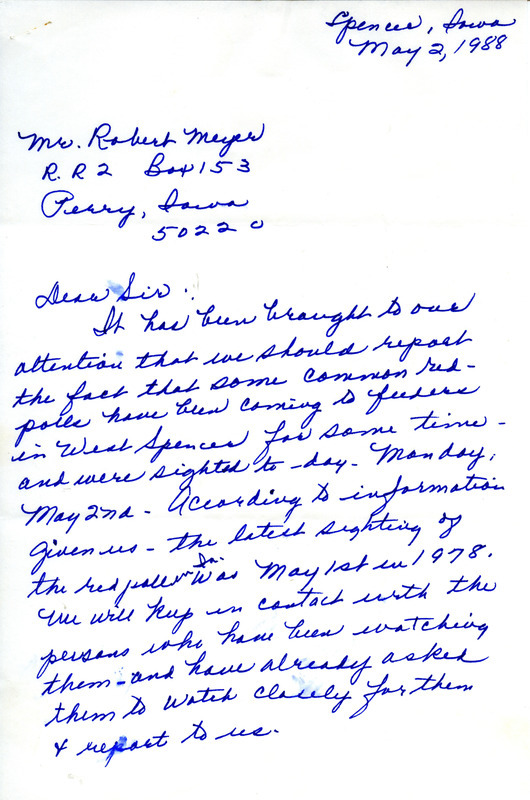 Spencer, Iowa
May 2, 1988
Mr. Robert Meyer
R. R 2 Box 153
Perry, Iowa
50220
Dear Sir:
It has been brought to our
attention that we should report
the fact that some common red-
polls have been coming to feeders
in West Spencer for some time -
and were sighted to-day - Monday,
May 2nd - According to information
given us - the latest sighting of
the redpoll in Ia. was May 1st in 1978.
We will keep in contact with the
persons who have been watching
them - and have already asked
them to watch closely for them
& report to us.